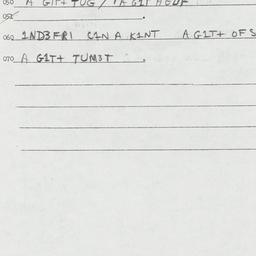 050 A GIT+ TUG / A G1T
052 .
060 1ND3FRI C1N A K1NT A G1T+ OF S
070 A G1T+ TUM3T .